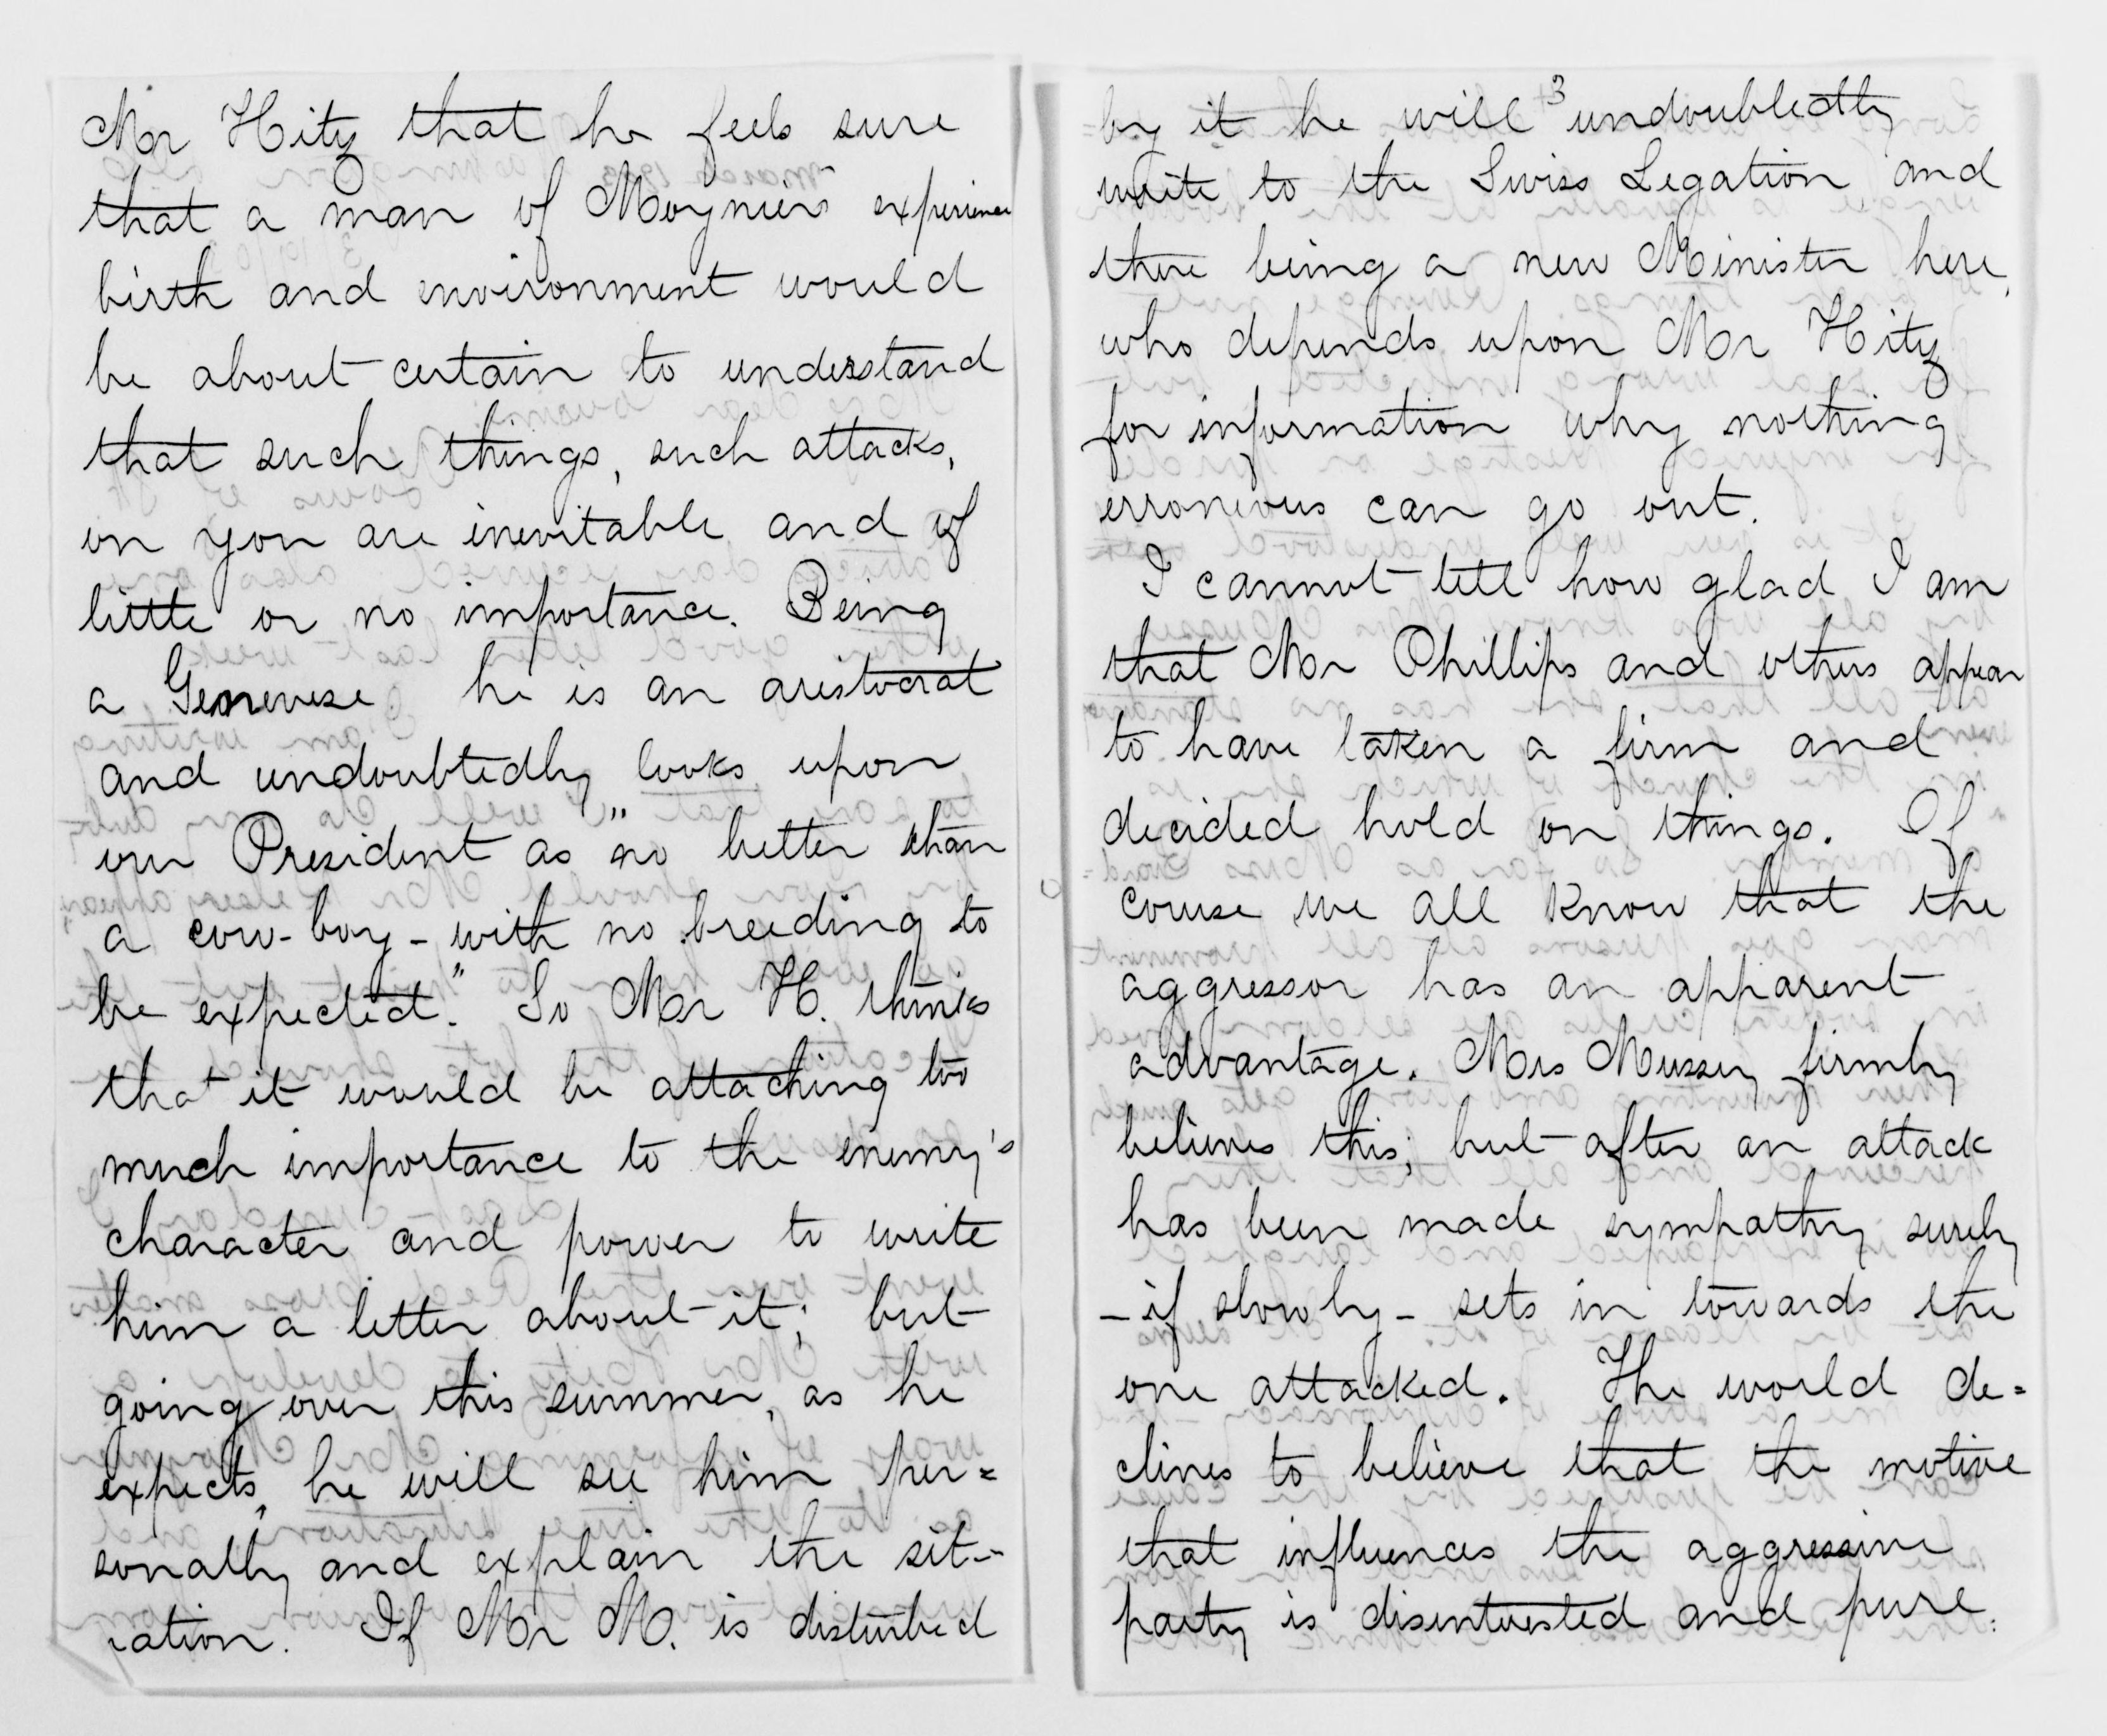 Mr Hitz that he feels sure
that a man of Moynier's experience
birth and environment would
be about certain to understand
that such things, such attacks,
on you are inevitable and of
little or no importance. Being
a Genevese he is an aristocrat
and undoubtedly looks upon
our President as "no better than
a cow-boy - with no breeding to
be expected." So Mr H. thinks
that it would be attaching too
much importance to the enemy's
character and power to write
him a letter about it; but
going over this summer, as he
expects, he will see him per=
sonally and explain the sit-
uation. If Mr M. is disturbed
3
by it he will undoubtedly
write to the Swiss Legation and
there being a new Minister here,
who depends upon Mr Hitz
for information why nothing
erroneous can go out.
I cannot tell how glad I am
that Mr Phillips and others appear
to have taken a firm and
decided hold on things. Of
course we all know that the
aggressor has an apparent
advantage. Mrs Mussey firmly
believes this; but after an attack
has been made sympathy surely
- if slowly - sets in towards the
one attacked. The world de=
clines to believe that the motive
that influences the aggressive
party is disinterested and pure.